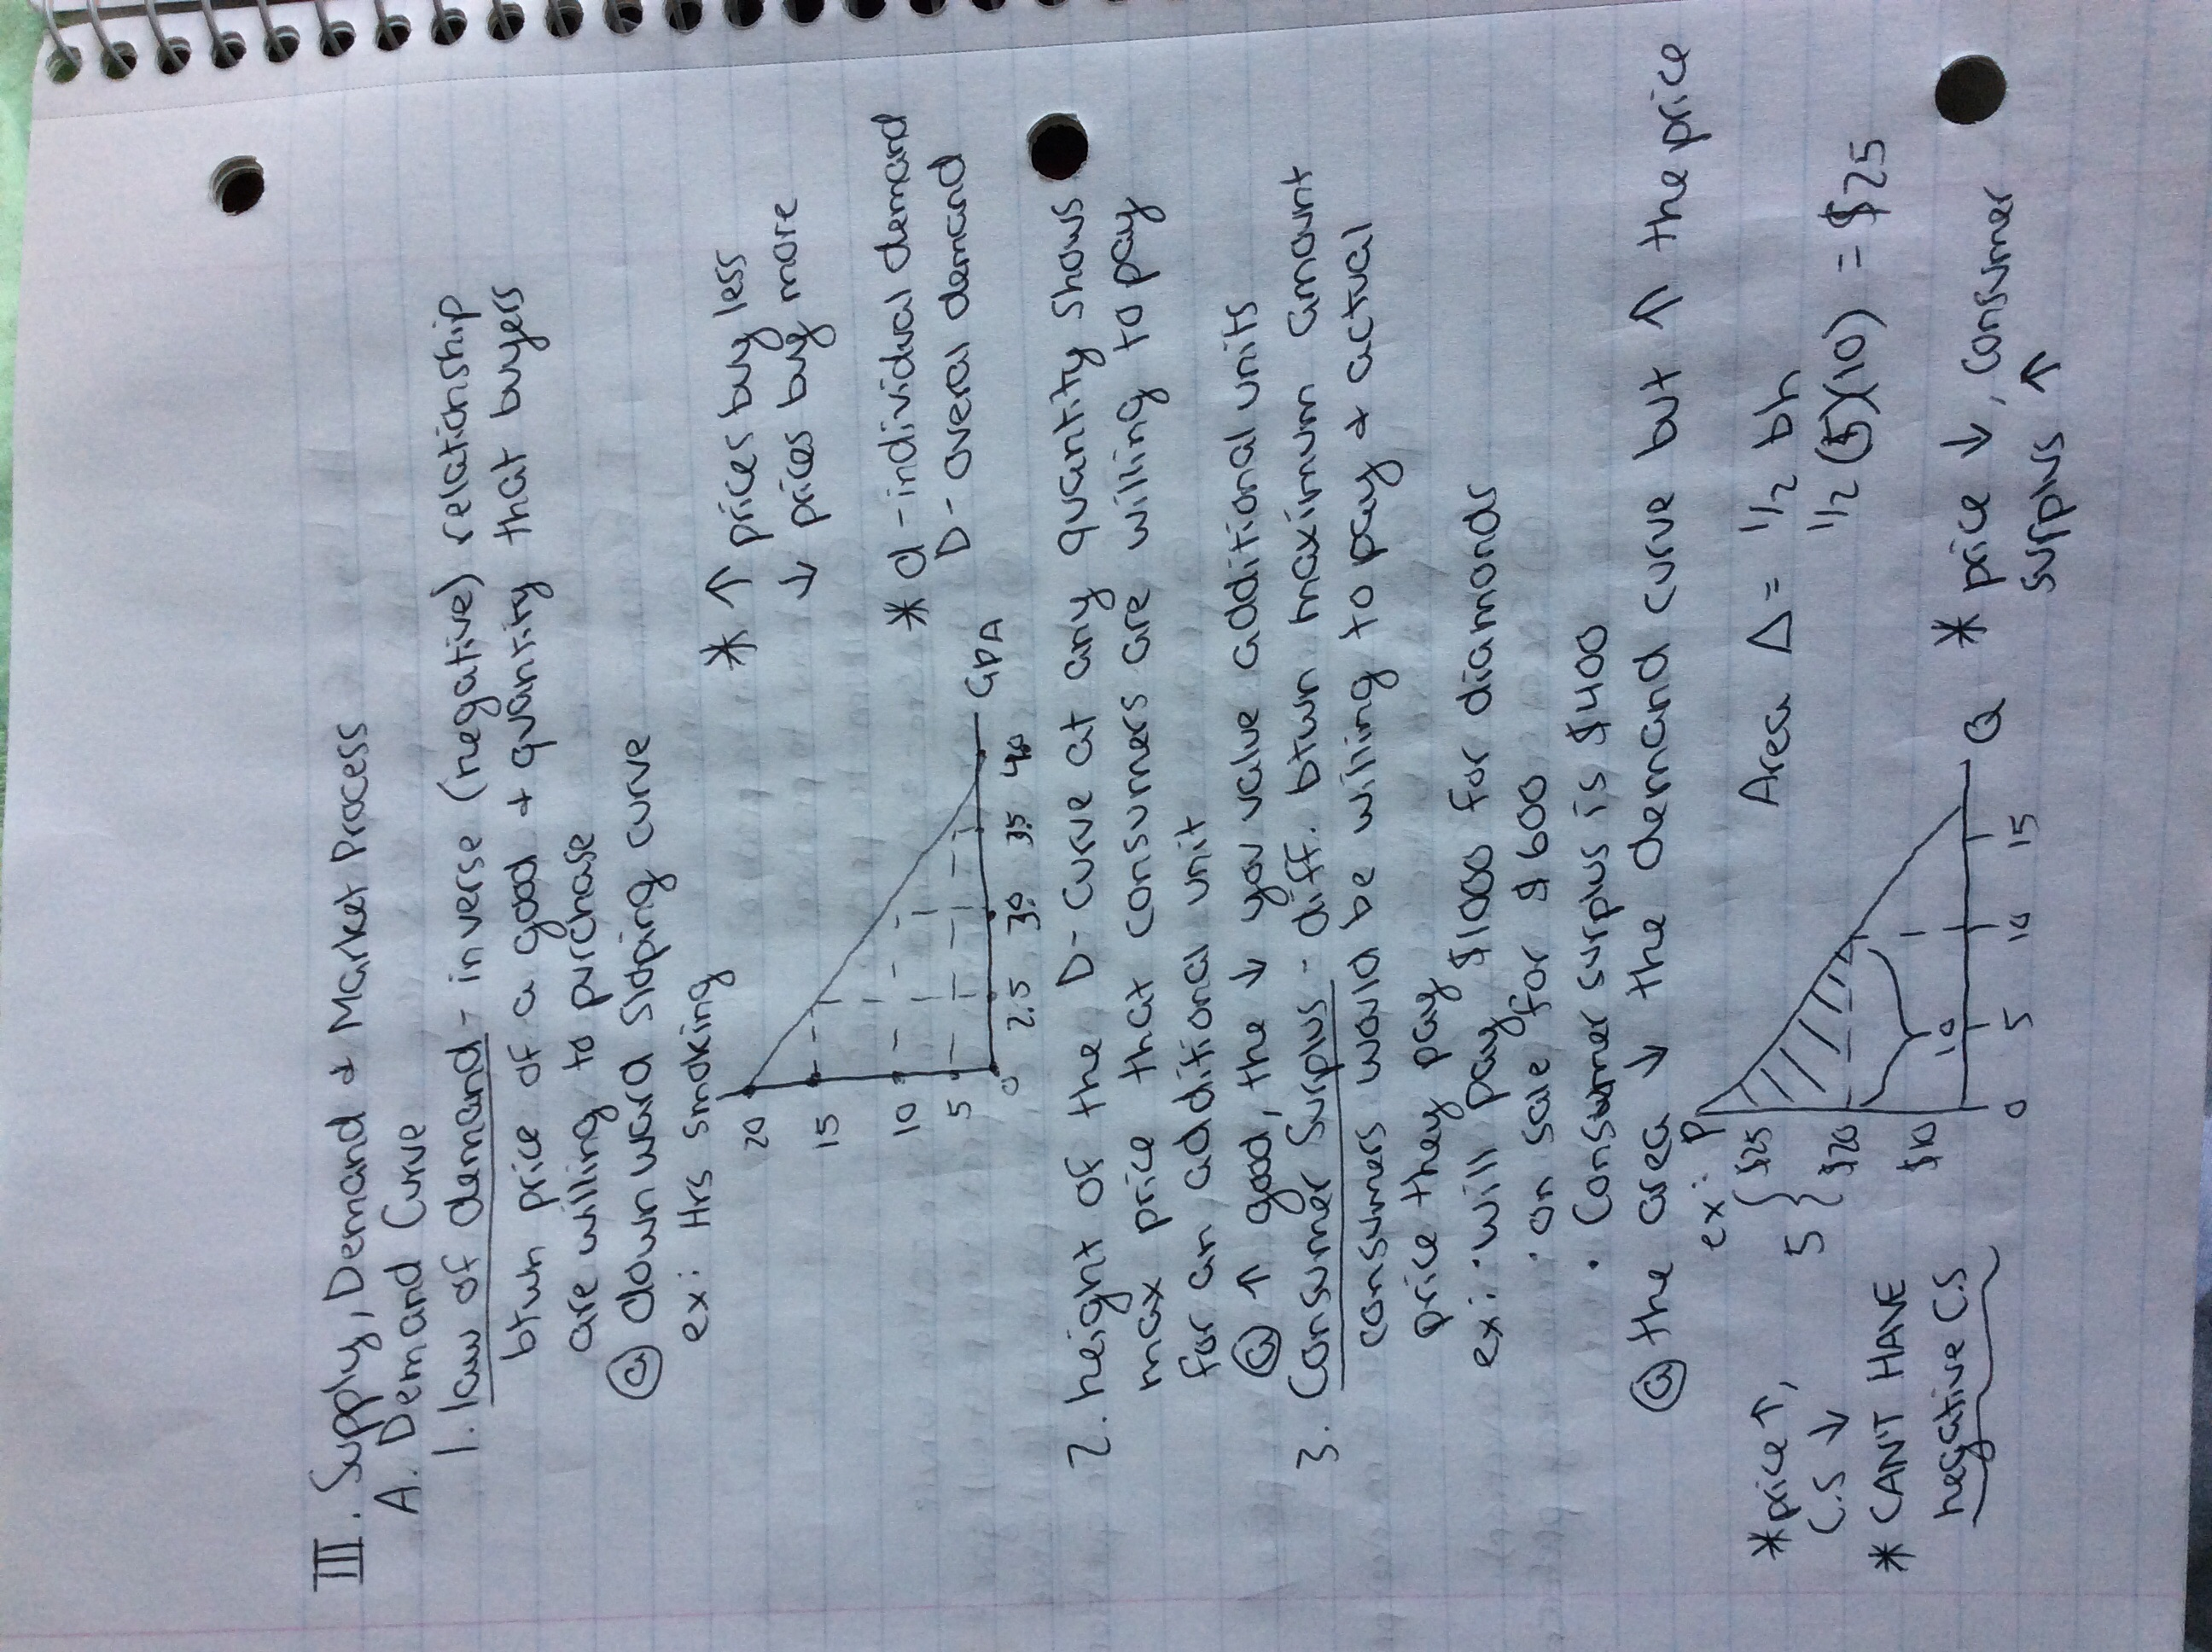 III. Supply, Demand & Market Process
A. Demand Curve
1. law of demand - inverse (negative) relationship
btwn price of a good + quantity that buyers
are willing to purchase
ⓐ downward sloping curve
ex: Hrs smoking
* ↑ prices buy less
↓ prices buy more
* d - individual demand
D - overal demand
20
15
10
5
0
2.5 3.0 3.5 4.0
GPA
2. height of the D-curve at any quantity shows
max price that consumers are willing to pay
for an additional unit
ⓐ ↑ good, the ↓ you value additional units
3. Consumer Surplus - diff. btwn maximum amount
consumers would be willing to pay & actual
price they pay
ex: • will pay $1000 for diamonds
• on sale for $600
• Consumer surplus is $400
ⓐ the area ↓ the demand curve but ↑ the price
ex: P
5 { $25
$20
$10
10
0 5 10 15 Q
Area Δ = 1/2 bh
1/2 (5)(10) = $25
* price ↑,
C.S ↓
* CAN'T HAVE
negative C.S
* price ↓, consumer
surplus ↑